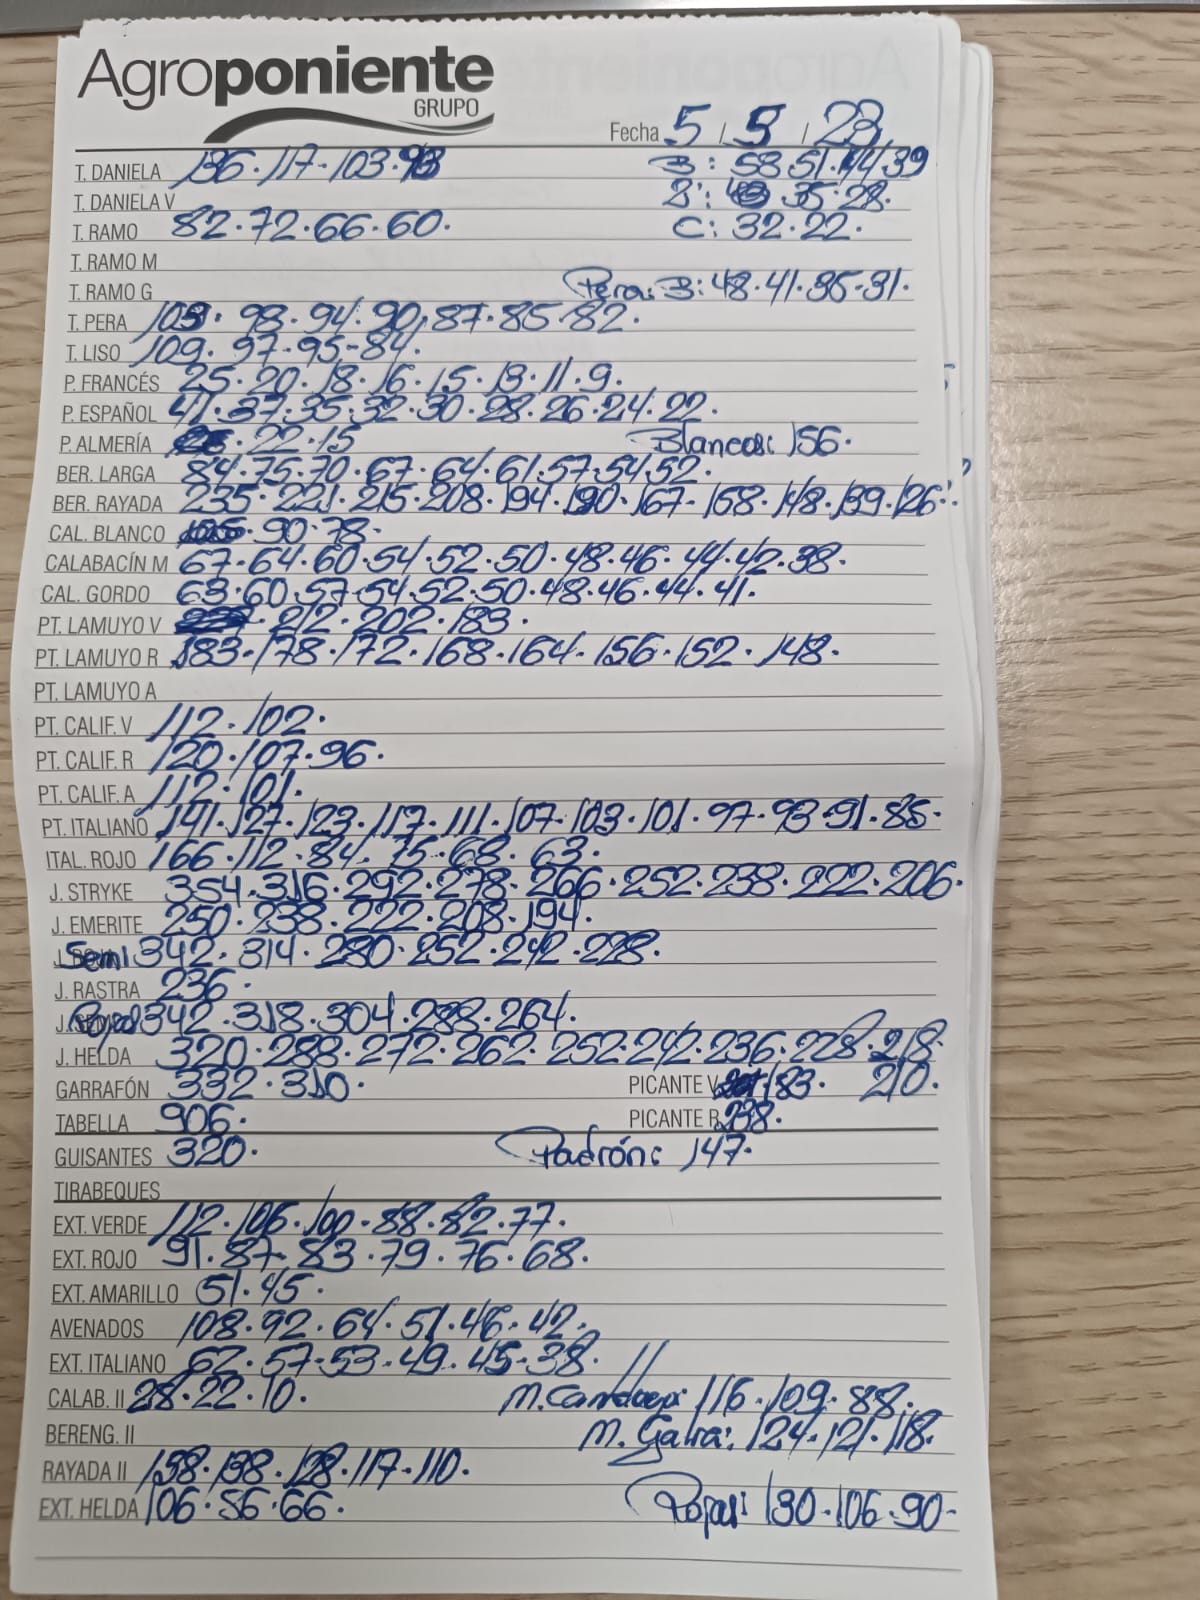 Agroponiente
GRUPO
Fecha 5 / 5 / 23
T. DANIELA 136 · 117 - 103 · 93 B: 58 · 51 · 44 · 39
T. DANIELA V B': 35 · 28.
T. RAMO 82 · 72 · 66 · 60. C: 32 · 22.
T. RAMO M
T. RAMO G Pera: B: 48 · 41 · 35 - 31.
T. PERA 103 · 98 · 94 · 90 · 87 · 85 · 82.
T. LISO 109 · 97 - 95 - 84.
P. FRANCÉS 25 · 20 · 18 · 16 · 15 · 13 · 11 · 9.
P. ESPAÑOL 41 · 37 · 35 · 32 · 30 · 28 · 26 · 24 · 22.
P. ALMERÍA · 22 · 15 Blancas: 156.
BER. LARGA 84 · 75 · 70 · 67 · 64 · 61 · 57 · 54 · 52.
BER. RAYADA 235 · 221 · 215 · 208 · 194 · 190 · 167 - 158 · 148 · 139 · 126.
CAL. BLANCO · 90 · 78.
CALABACÍN M 67 · 64 · 60 · 54 · 52 · 50 · 48 · 46 · 44 · 42 · 38.
CAL. GORDO 63 · 60 · 57 - 54 · 52 · 50 · 48 · 46 · 44 · 41.
PT. LAMUYO V · 212 · 202 · 183.
PT. LAMUYO R 183 · 178 · 172 · 168 · 164 - 156 · 152 · 148.
PT. LAMUYO A
PT. CALIF. V 112 · 102.
PT. CALIF. R 120 · 107 · 96.
PT. CALIF. A 112 · 101.
PT. ITALIANO 141 · 127 · 123 · 117 · 111 · 107 · 103 · 101 · 97 · 93 · 91 · 85.
ITAL. ROJO 166 · 112 · 84 · 75 · 68 · 63.
J. STRYKE 354 · 316 · 292 · 278 - 266 · 252 · 238 · 222 · 206.
J. EMERITE 250 · 238 · 222 · 208 · 194.
Semi 342 · 314 · 280 · 252 · 242 · 228.
J. RASTRA 236.
Roja 342 · 318 · 304 · 288 · 264.
J. HELDA 320 · 288 · 272 · 262 · 252 · 242 · 236 · 228 · 218.
GARRAFÓN 332 · 310. PICANTE V 183. 210.
TABELLA 906. PICANTE R 238.
GUISANTES 320. Padrón: 147.
TIRABEQUES
EXT. VERDE 112 · 106 · 100 · 88 · 82 · 77.
EXT. ROJO 91 · 87 - 83 · 79 · 76 · 68.
EXT. AMARILLO 51 · 45.
AVENADOS 108 · 92 · 64 · 51 · 46 · 42.
EXT. ITALIANO 62 · 57 - 53 · 49 · 45 - 38. //
CALAB. II 28 · 22 · 10. M. Cantaloup: 116 · 109 · 88.
BERENG. II M. Galia: 124 · 121 · 118.
RAYADA II 158 · 138 · 128 · 117 - 110.
EXT. HELDA 106 · 86 · 66. Rojas: 130 · 106 · 90 -